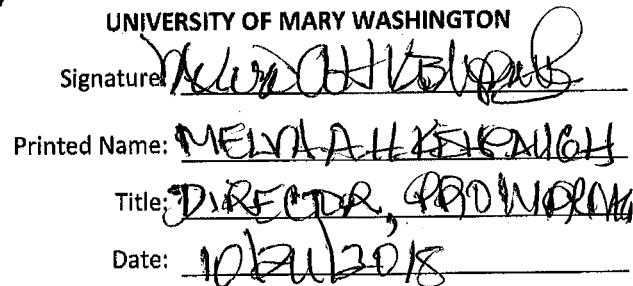 UNIVERSITY OF MARY WASHINGTON
Signature:
Printed Name: MELVA A H KISHPAUGH
Title: DIRECTOR,
Date: 10/24/2018